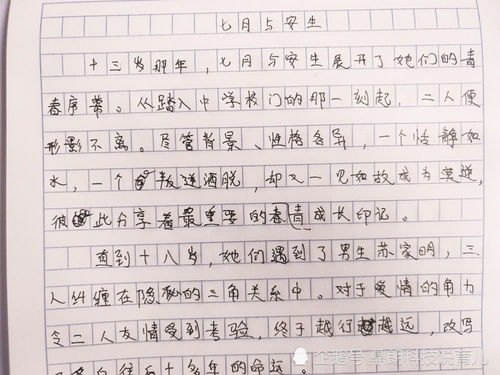 七月与安生
十三岁那年，七月与安生展开了她们的青
春序幕。从踏入中学校门的那一刻起，二人便
形影不离。尽管背景、性格各异，一个恬静如
水，一个叛逆洒脱，却又一见如故成为莫逆，
彼此分享着最重要的春青成长印记。
直到十八岁，她们遇到了男生苏家明，三
人纠缠在隐秘的三角关系中。对于爱情的角力
令二人友情受到考验，终于越行越远，改写
往后十多年的命运。
企鹅号